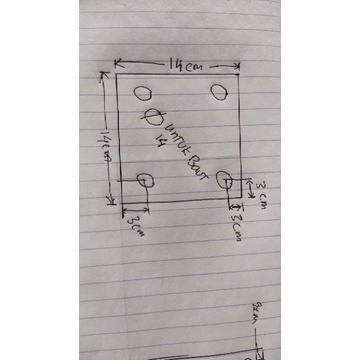 14cm
14cm
Ø UNTUK BAUT
14
3 cm
3cm
3cm